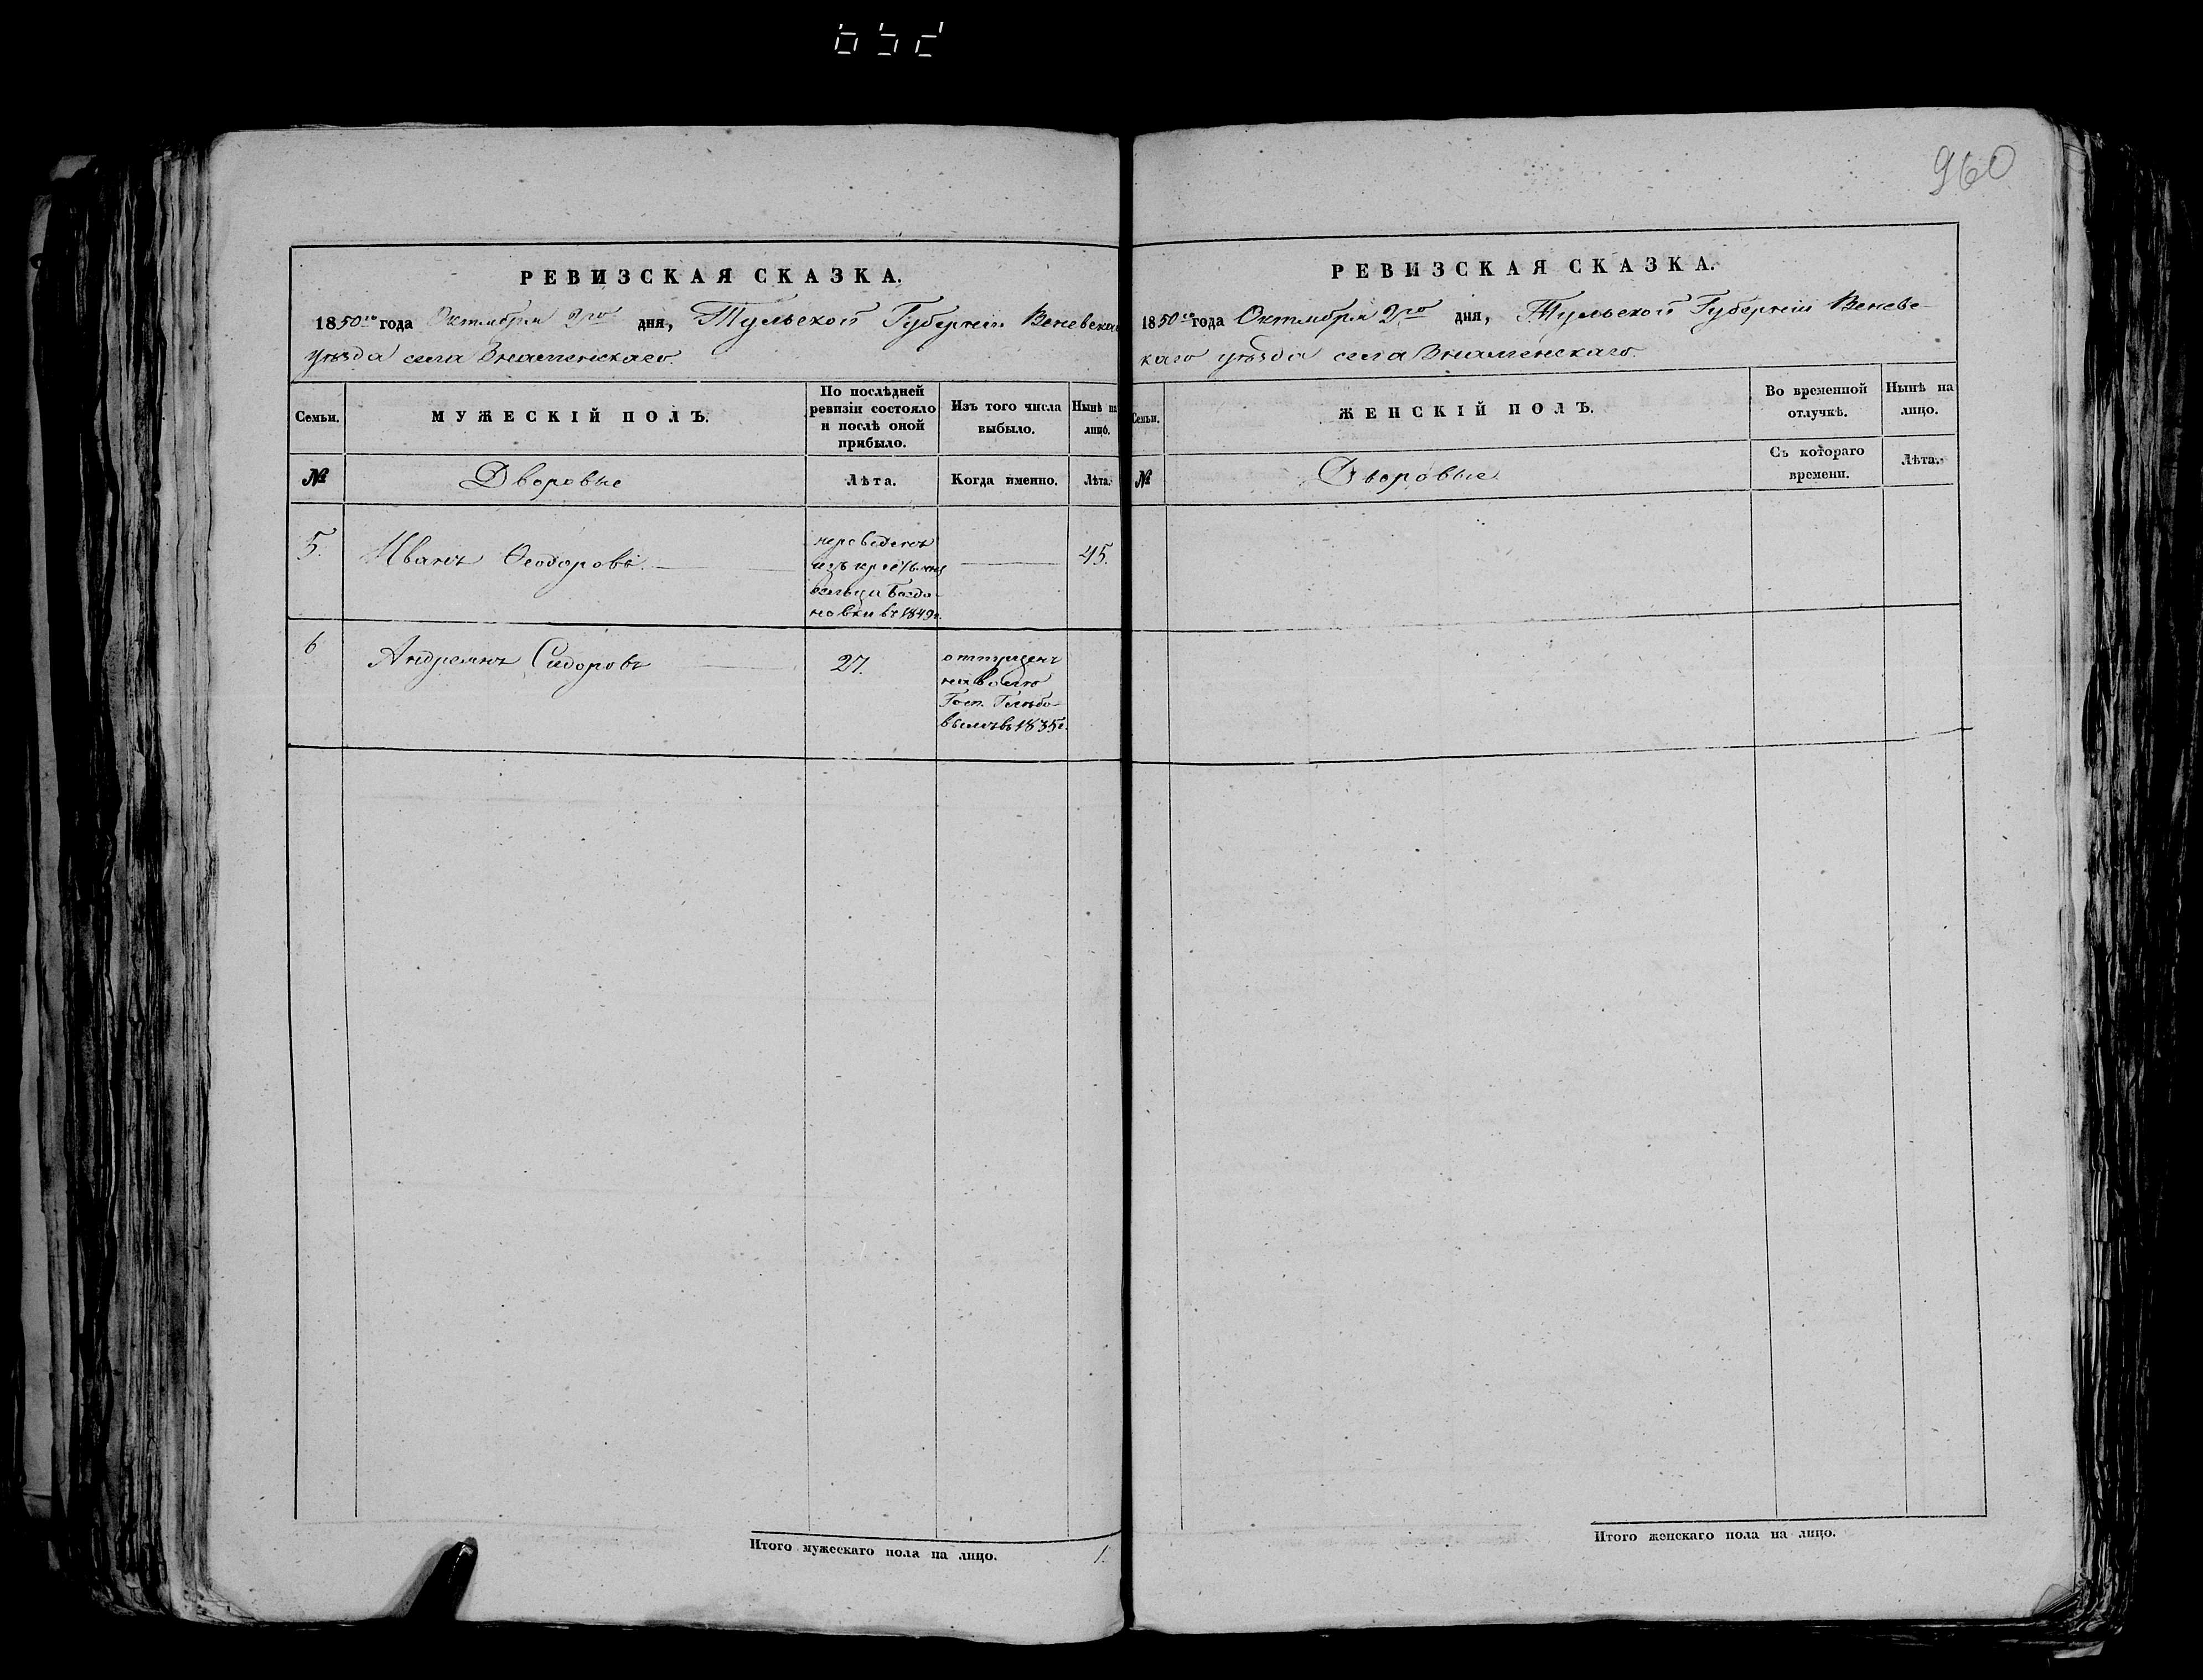 960
РЕВИЗСКАЯ СКАЗКА.
1850го года Октября 2го дня, Тульской Губерніи Веневскаго
уѣзда села Знаменскаго.
Семьи.
МУЖЕСКІЙ ПОЛЪ.
По послѣдней
ревизіи состояло
и послѣ оной
прибыло.
Изъ того числа
выбыло.
Нынѣ на
лицо.
№
Дворовые
Лѣта.
Когда именно.
Лѣта.
5.
Иванъ Ѳеодоровъ.
переведенъ
изъ крестьянъ
сельца Богда-
новки въ 1849г.
45.
6
Андреянъ Сидоровъ
27.
отпущенъ
на волю
Госп. Глѣбо-
вымъ въ 1835г.
Итого мужескаго пола на лицо.
1.
РЕВИЗСКАЯ СКАЗКА.
1850го года Октября 2го дня, Тульской Губерніи Веневс-
каго уѣзда села Знаменскаго.
Семьи.
ЖЕНСКІЙ ПОЛЪ.
Во временной
отлучкѣ.
Нынѣ на
лицо.
№
Дворовые
Съ котораго
времени.
Лѣта.
Итого женскаго пола на лицо.